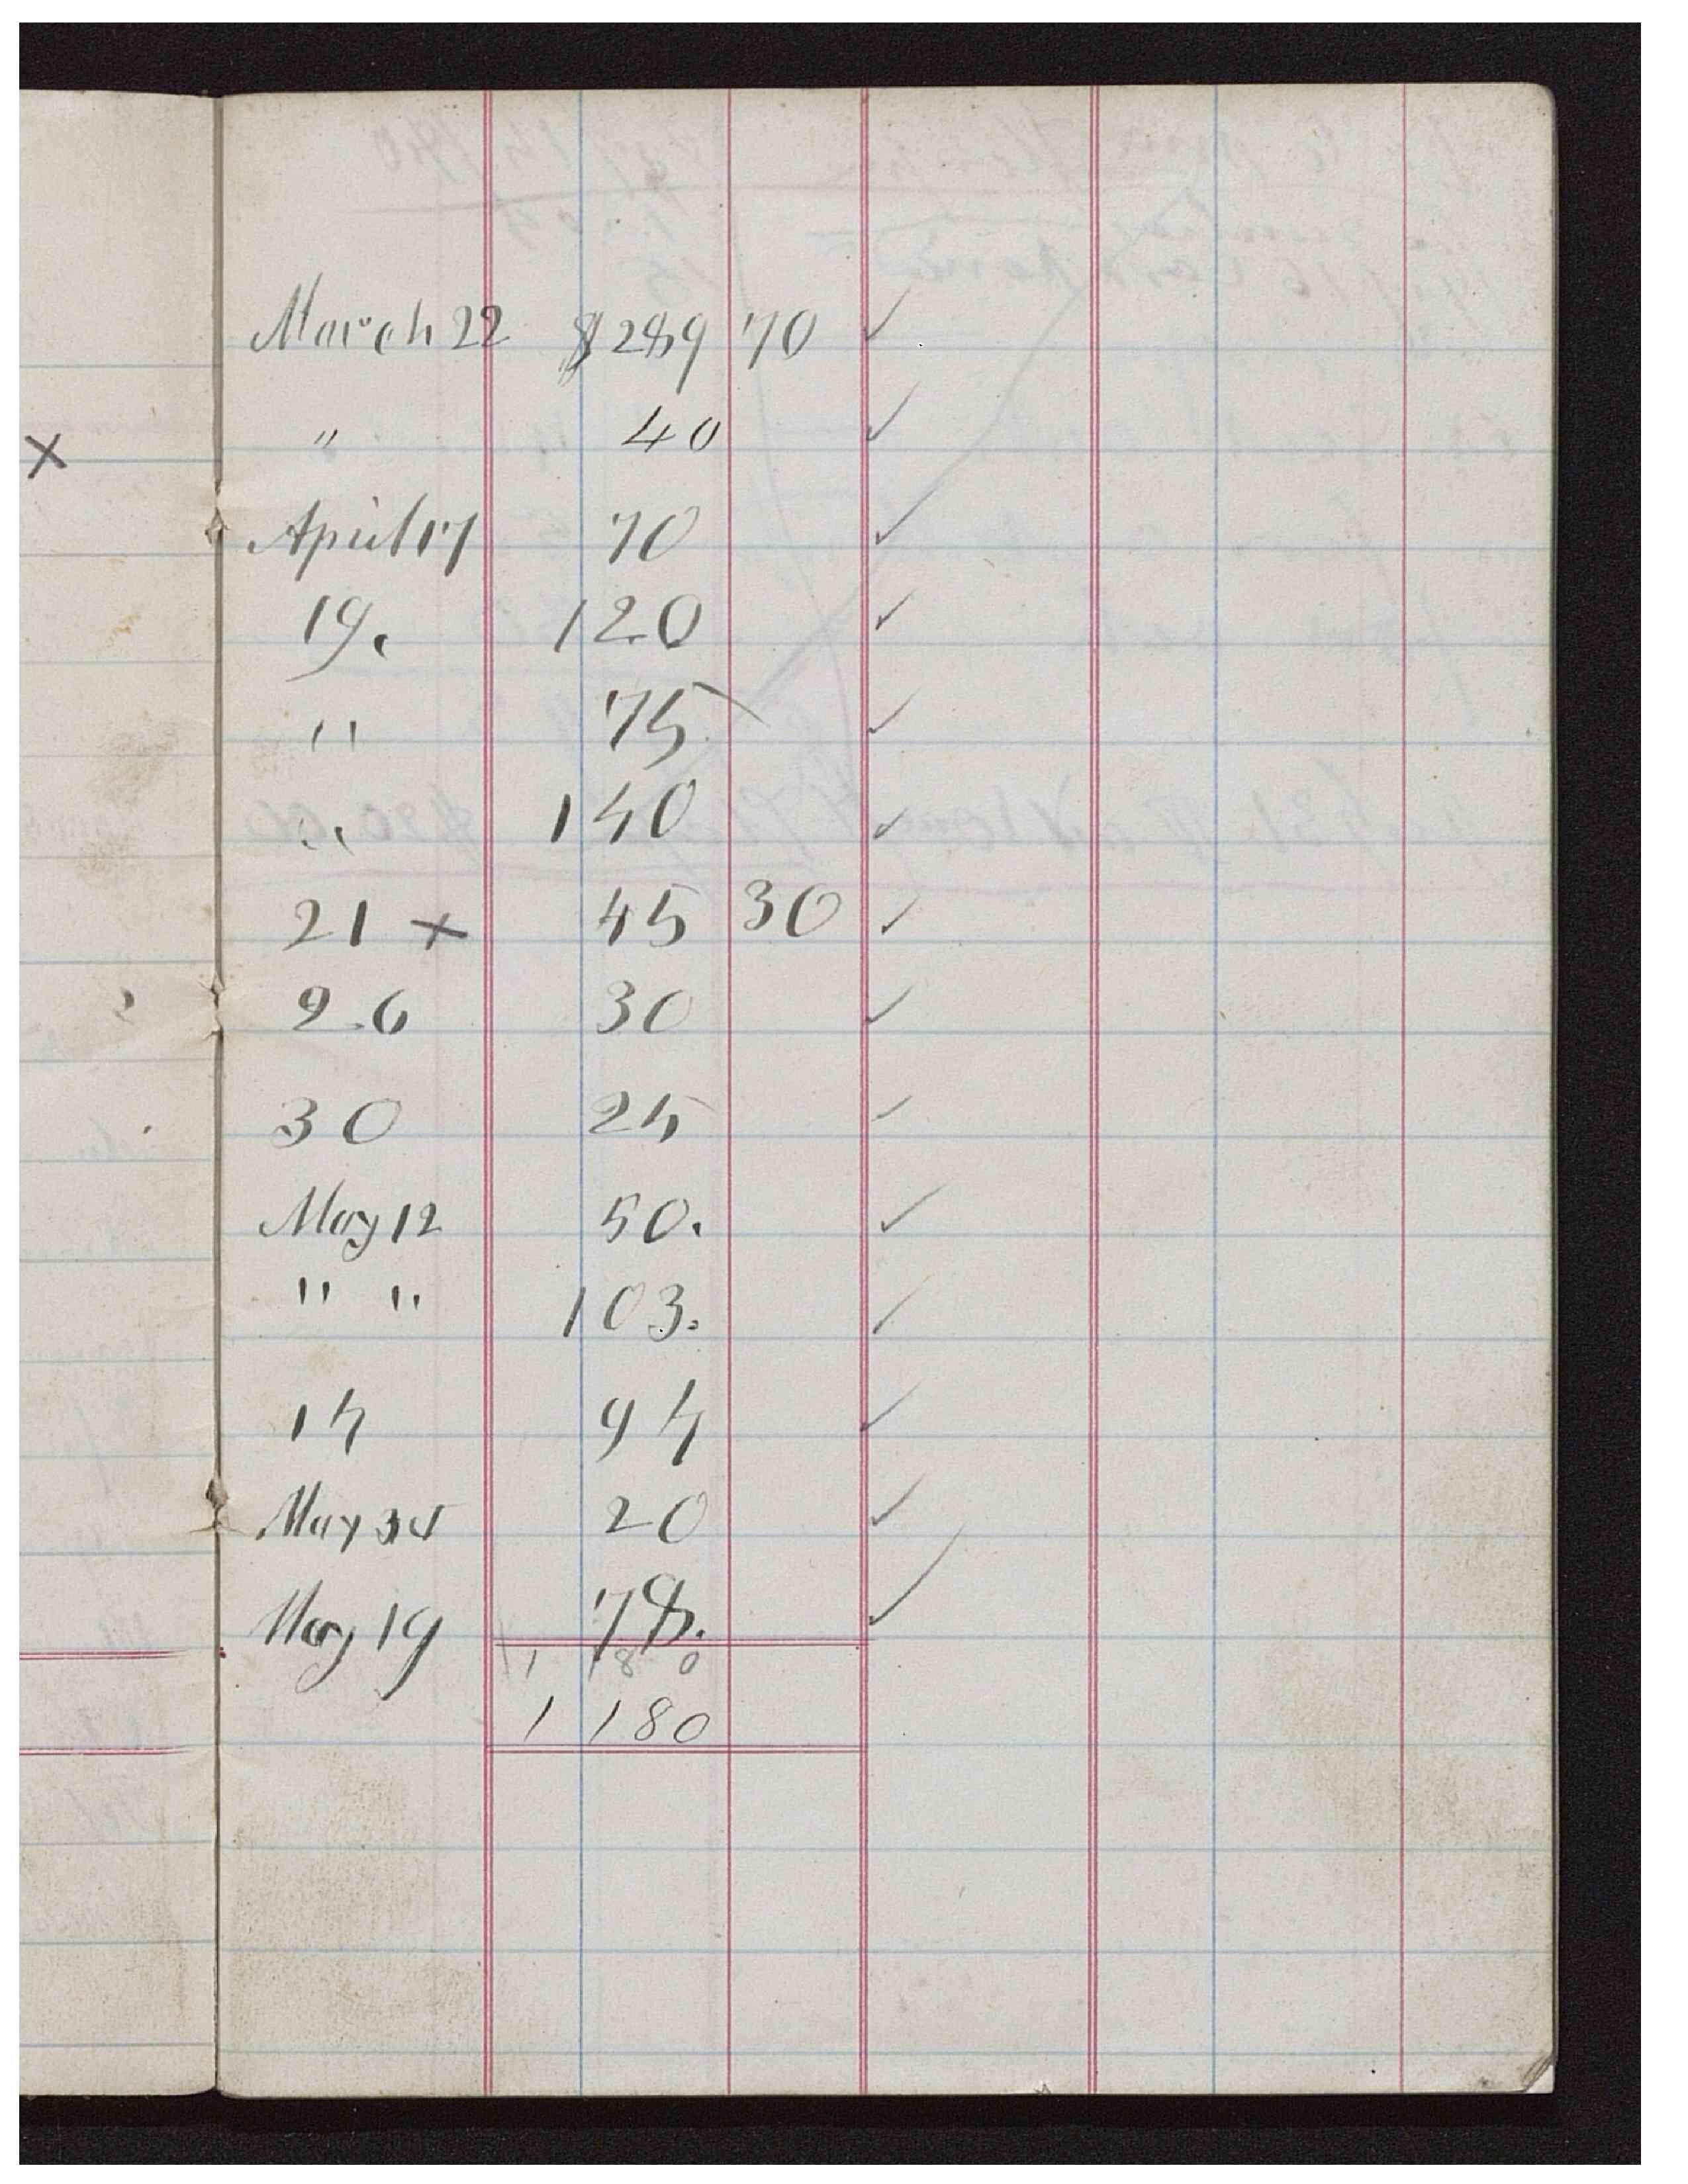 March 22 $289 70 ✓
" 40 ✓
X
April 17 70 ✓
19. 120 ✓
" 75 ✓
" 140 ✓
21 x 45 30 ✓
26 30 ✓
30 25 ✓
May 12 50. ✓
" " 103. ✓
14 94 ✓
May 20 ✓
May 19 78. ✓
1 180
1 180